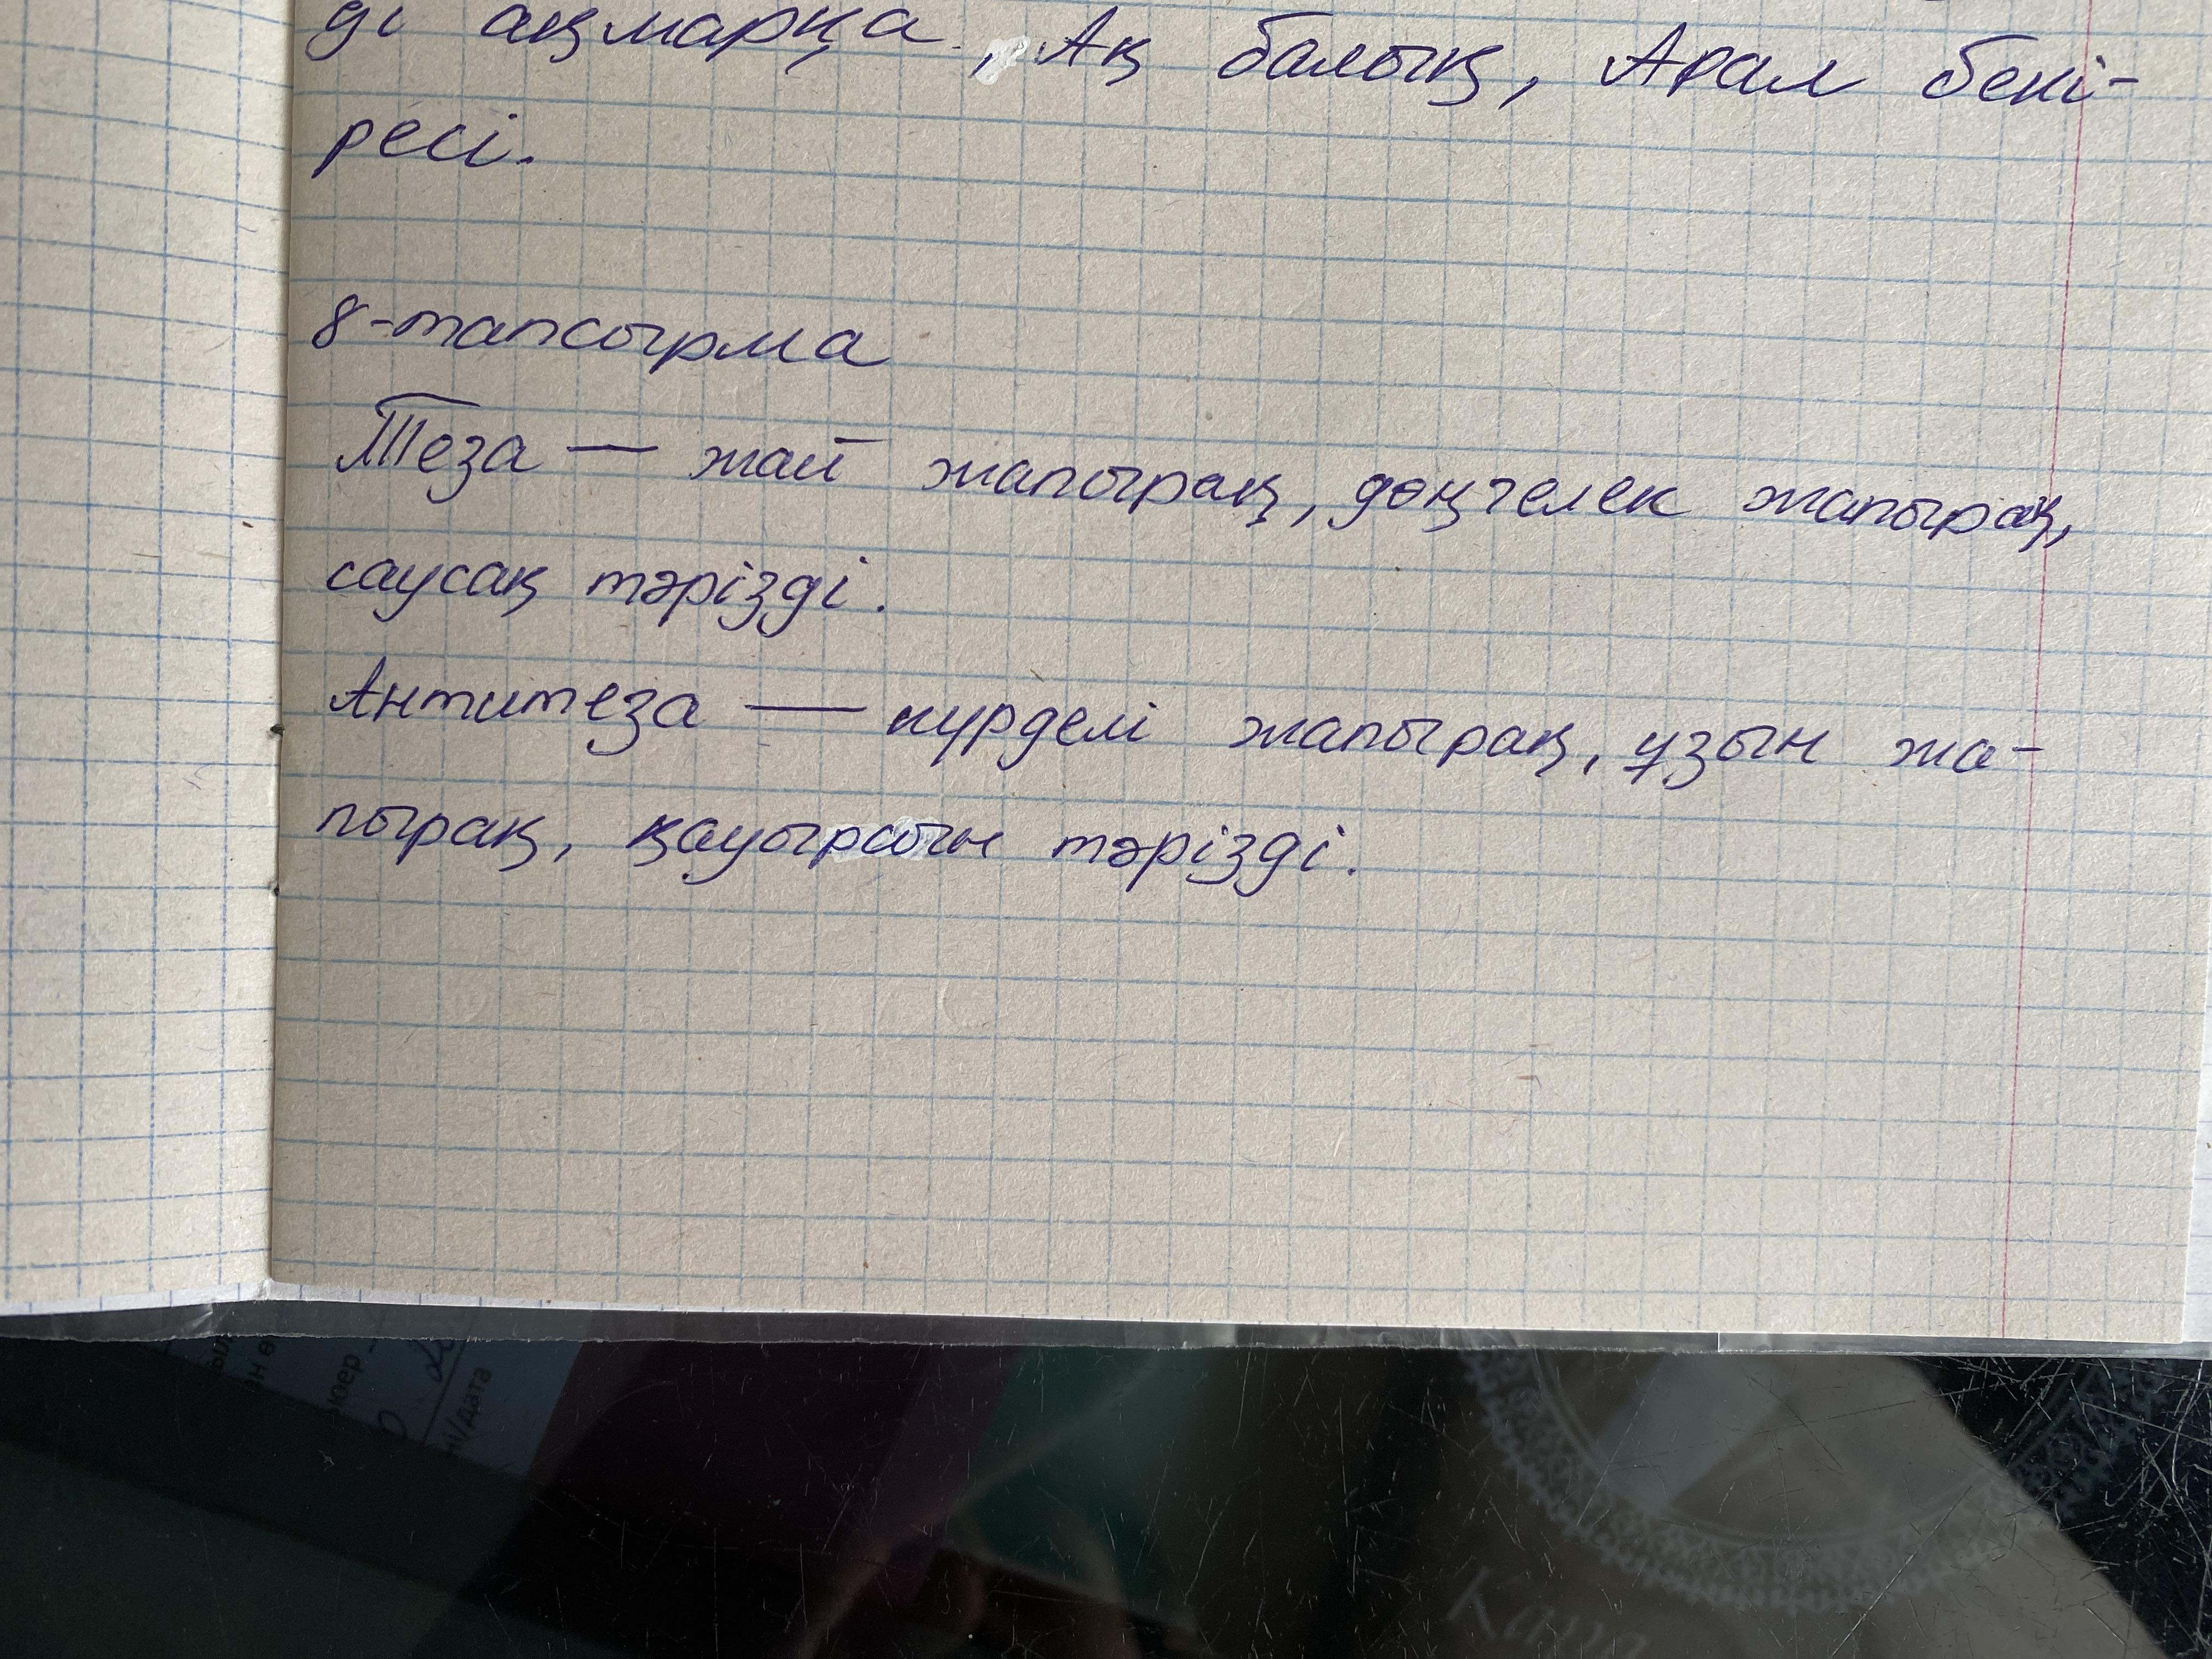 ді ақмарқа, Ақ балық, Арал бекі-
ресі.
8-тапсырма
Теза — жай жапырақ, дөңгелек жапырақ,
саусақ тәрізді.
Антитеза — күрделі жапырақ, ұзын жа-
пырақ, қауырсын тәрізді.
/дата